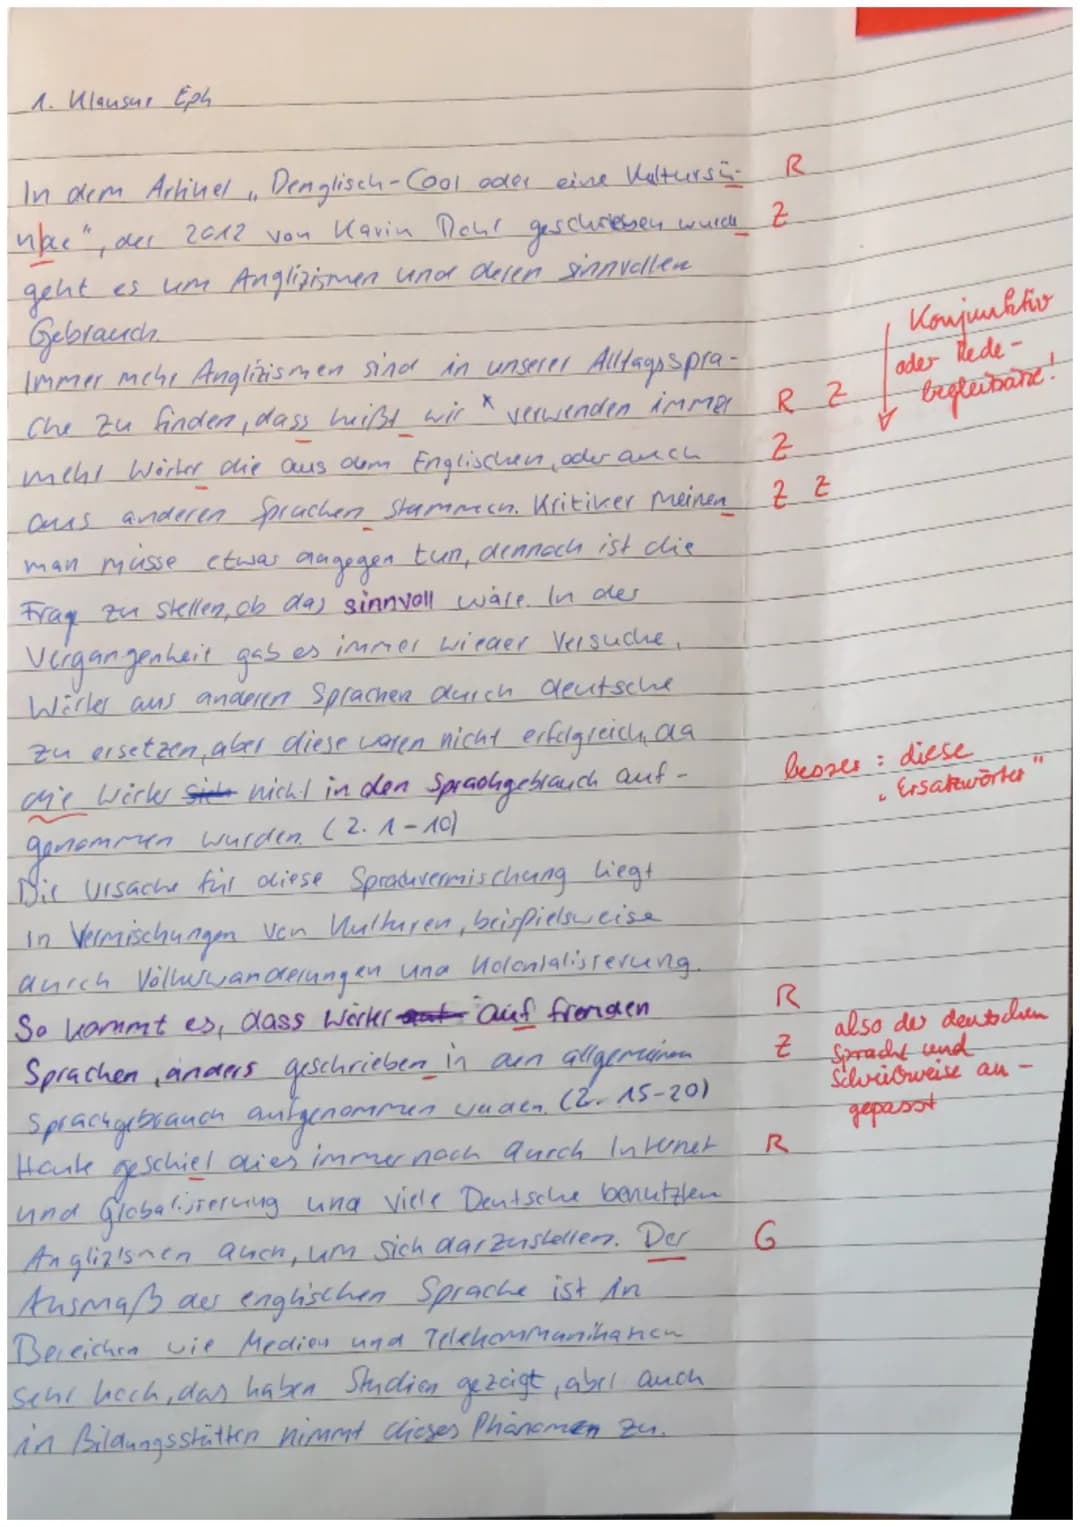 1. Klausur Eph
In dem Artikel „Denglisch-Cool oder eine Kultursü- R
nde", der 2012 von Karin geschrieben wurde Z
geht es um Anglizismen und deren sinnvollen
Gebrauch.
Konjunktiv
oder Rede-
begleitsätze!
Immer mehr Anglizismen sind in unserer Alltagsspra-
che zu finden, dass heißt wir x verwenden immer R Z
mehr Wörter die aus dem Englischen, oder auch Z
aus anderen Sprachen stammen. Kritiker meinen Z Z
man müsse etwas dagegen tun, dennoch ist die
Frag zu stellen, ob das sinnvoll wäre. In der
Vergangenheit gab es immer wieder Versuche,
Wörter aus anderen Sprachen durch deutsche
zu ersetzen, aber diese waren nicht erfolgreich, da
besser: diese
„Ersatzwörter"
die Wörter sich nicht in den Sprachgebrauch auf-
genommen wurden. (Z. 1-10)
Die Ursache für diese Sprachvermischung liegt
in Vermischungen von Kulturen, beispielsweise
durch Völkerwanderungen und Kolonialisierung.
So kommt es, dass Wörter auf fremden R
Sprachen, anders geschrieben in den allgemeinen Z
Sprachgebrauch aufgenommen wurden. (Z. 15-20)
also der deutschen
Sprache und
Schreibweise an-
gepasst
Heute geschiel dies immer noch durch Internet R
und Globalisierung und viele Deutsche benutzten
Anglizismen auch, um sich darzustellen. Der G
Ausmaß der englischen Sprache ist in
Bereichen wie Medien und Telekommunikation
sehr hoch, das haben Studien gezeigt, aber auch
in Bildungsstätten nimmt dieses Phänomen zu.